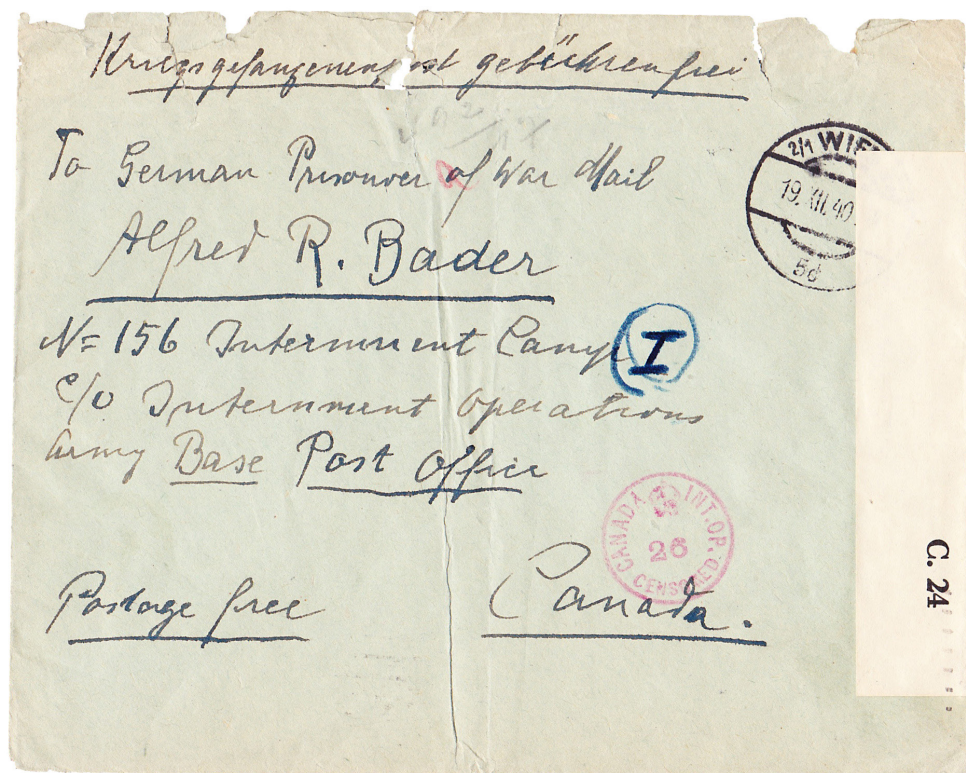 Kriegsgefangenenpost gebührenfrei
To German Prisonver of War Mail
Alfred R. Bader
№ 156 Internment Camp I
c/o Internment Operations
Army Base Post Office
Postage free
Canada.
2/1 WIE
19.XII.40
5d
CANADA INT. OP.
26
CENSORED
C. 24